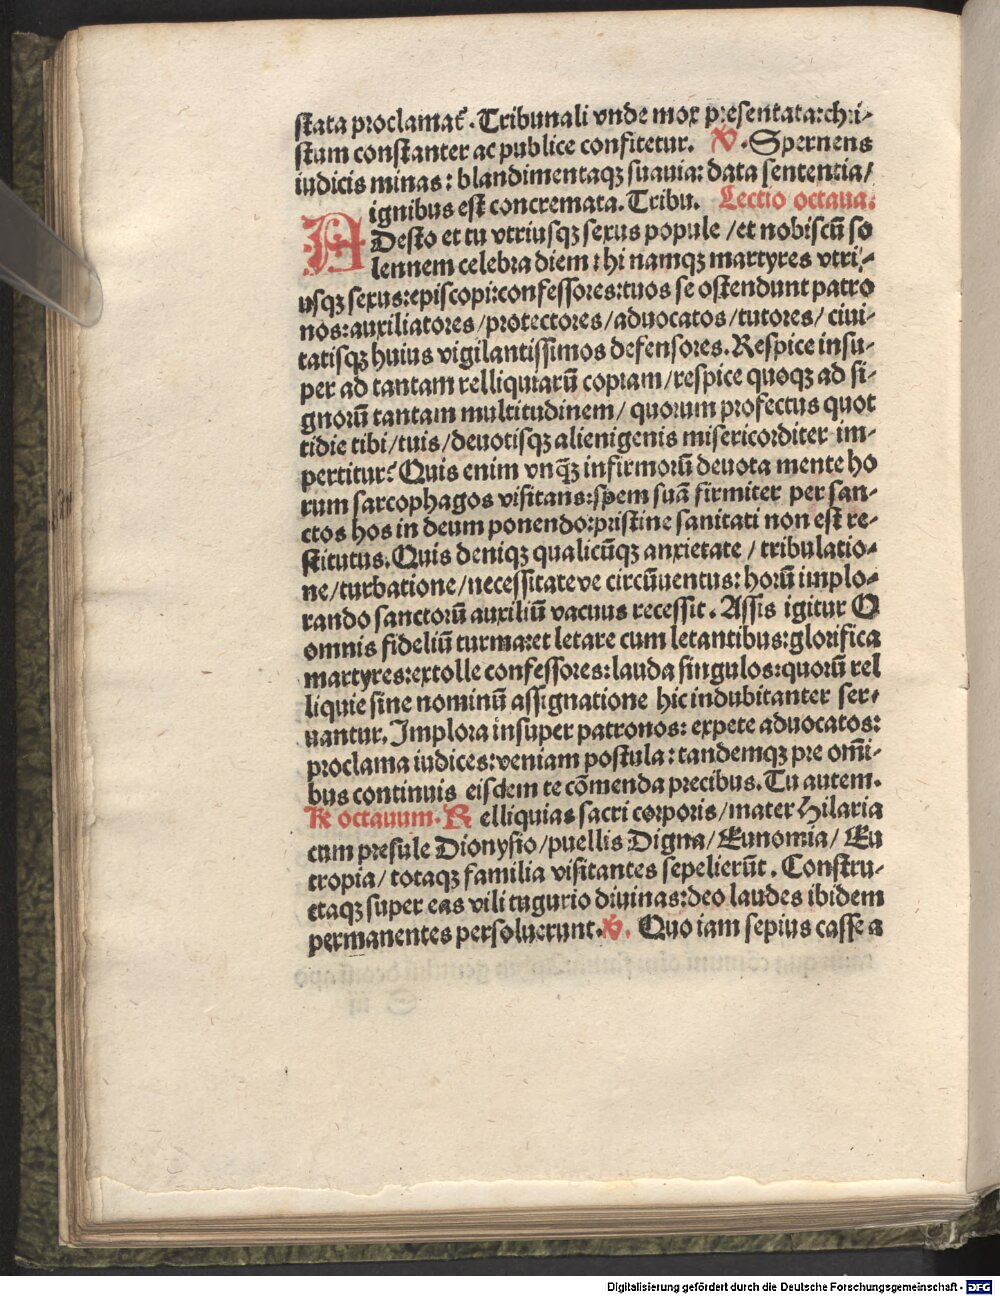 ſtata proclamat̄. Tribunali vnde mox preſentata:chri-
ſtum conſtanter ac publice confitetur. V. Spernens
iudicis minas: blandimentaqꝫ ſuauia: data ſententia/
ignibus eſt concremata. Tribu. Lectio octaua.
ADeſto et tu vtriuſqꝫ ſexus popule /et nobiſcū ſo
lennem celebra diem: hi namqꝫ martyres vtri-
uſqꝫ ſexus:epiſcopi:confeſſores:tuos ſe oſtendunt patro
nos:auxiliatores/protectores/aduocatos/tutores/ ciui-
tatiſqꝫ huius vigilantiſſimos defenſores. Reſpice inſu-
per ad tantam relliquiarū copiam/reſpice quoqꝫ ad ſi-
gnorū tantam multitudinem/ quorum profectus quot
tidie tibi/tuis/deuotiſqꝫ alienigenis miſericorditer im-
pertitur? Quis enim vnqꝫ̄ infirmorū deuota mente ho
rum ſarcophagos viſitans:ſpem ſuā firmiter per ſan-
ctos hos in deum ponendo:priſtine ſanitati non eſt re-
ſtitutus. Quis deniqꝫ qualicūqꝫ anxietate / tribulatio-
ne/turbatione/neceſſitateve circūuentus: horū implo-
rando ſanctorū auxiliū vacuus receſſit. Aſſis igitur O
omnis fideliū turma:et letare cum letantibus:glorifica
martyres:extolle confeſſores:lauda ſingulos:quorū rel
liquie ſine nominū aſſignatione hic indubitanter ſer-
uantur. Implora inſuper patronos: expete aduocatos:
proclama iudices:veniam poſtula: tandemqꝫ pre om̄i-
bus continuis eiſdem te cōmenda precibus. Tu autem.
R octauum. Relliquias ſacri corporis/mater Hilaria
cum preſule Dionyſio/puellis Digna/Eunomia/ Eu
tropia/ totaqꝫ familia viſitantes ſepelierūt. Conſtru-
ctaqꝫ ſuper eas vili tugurio diuinas:deo laudes ibidem
permanentes perſoluerunt. V. Quo iam ſepius caſſe a
Digitalisierung gefördert durch die Deutsche Forschungsgemeinschaft - DFG